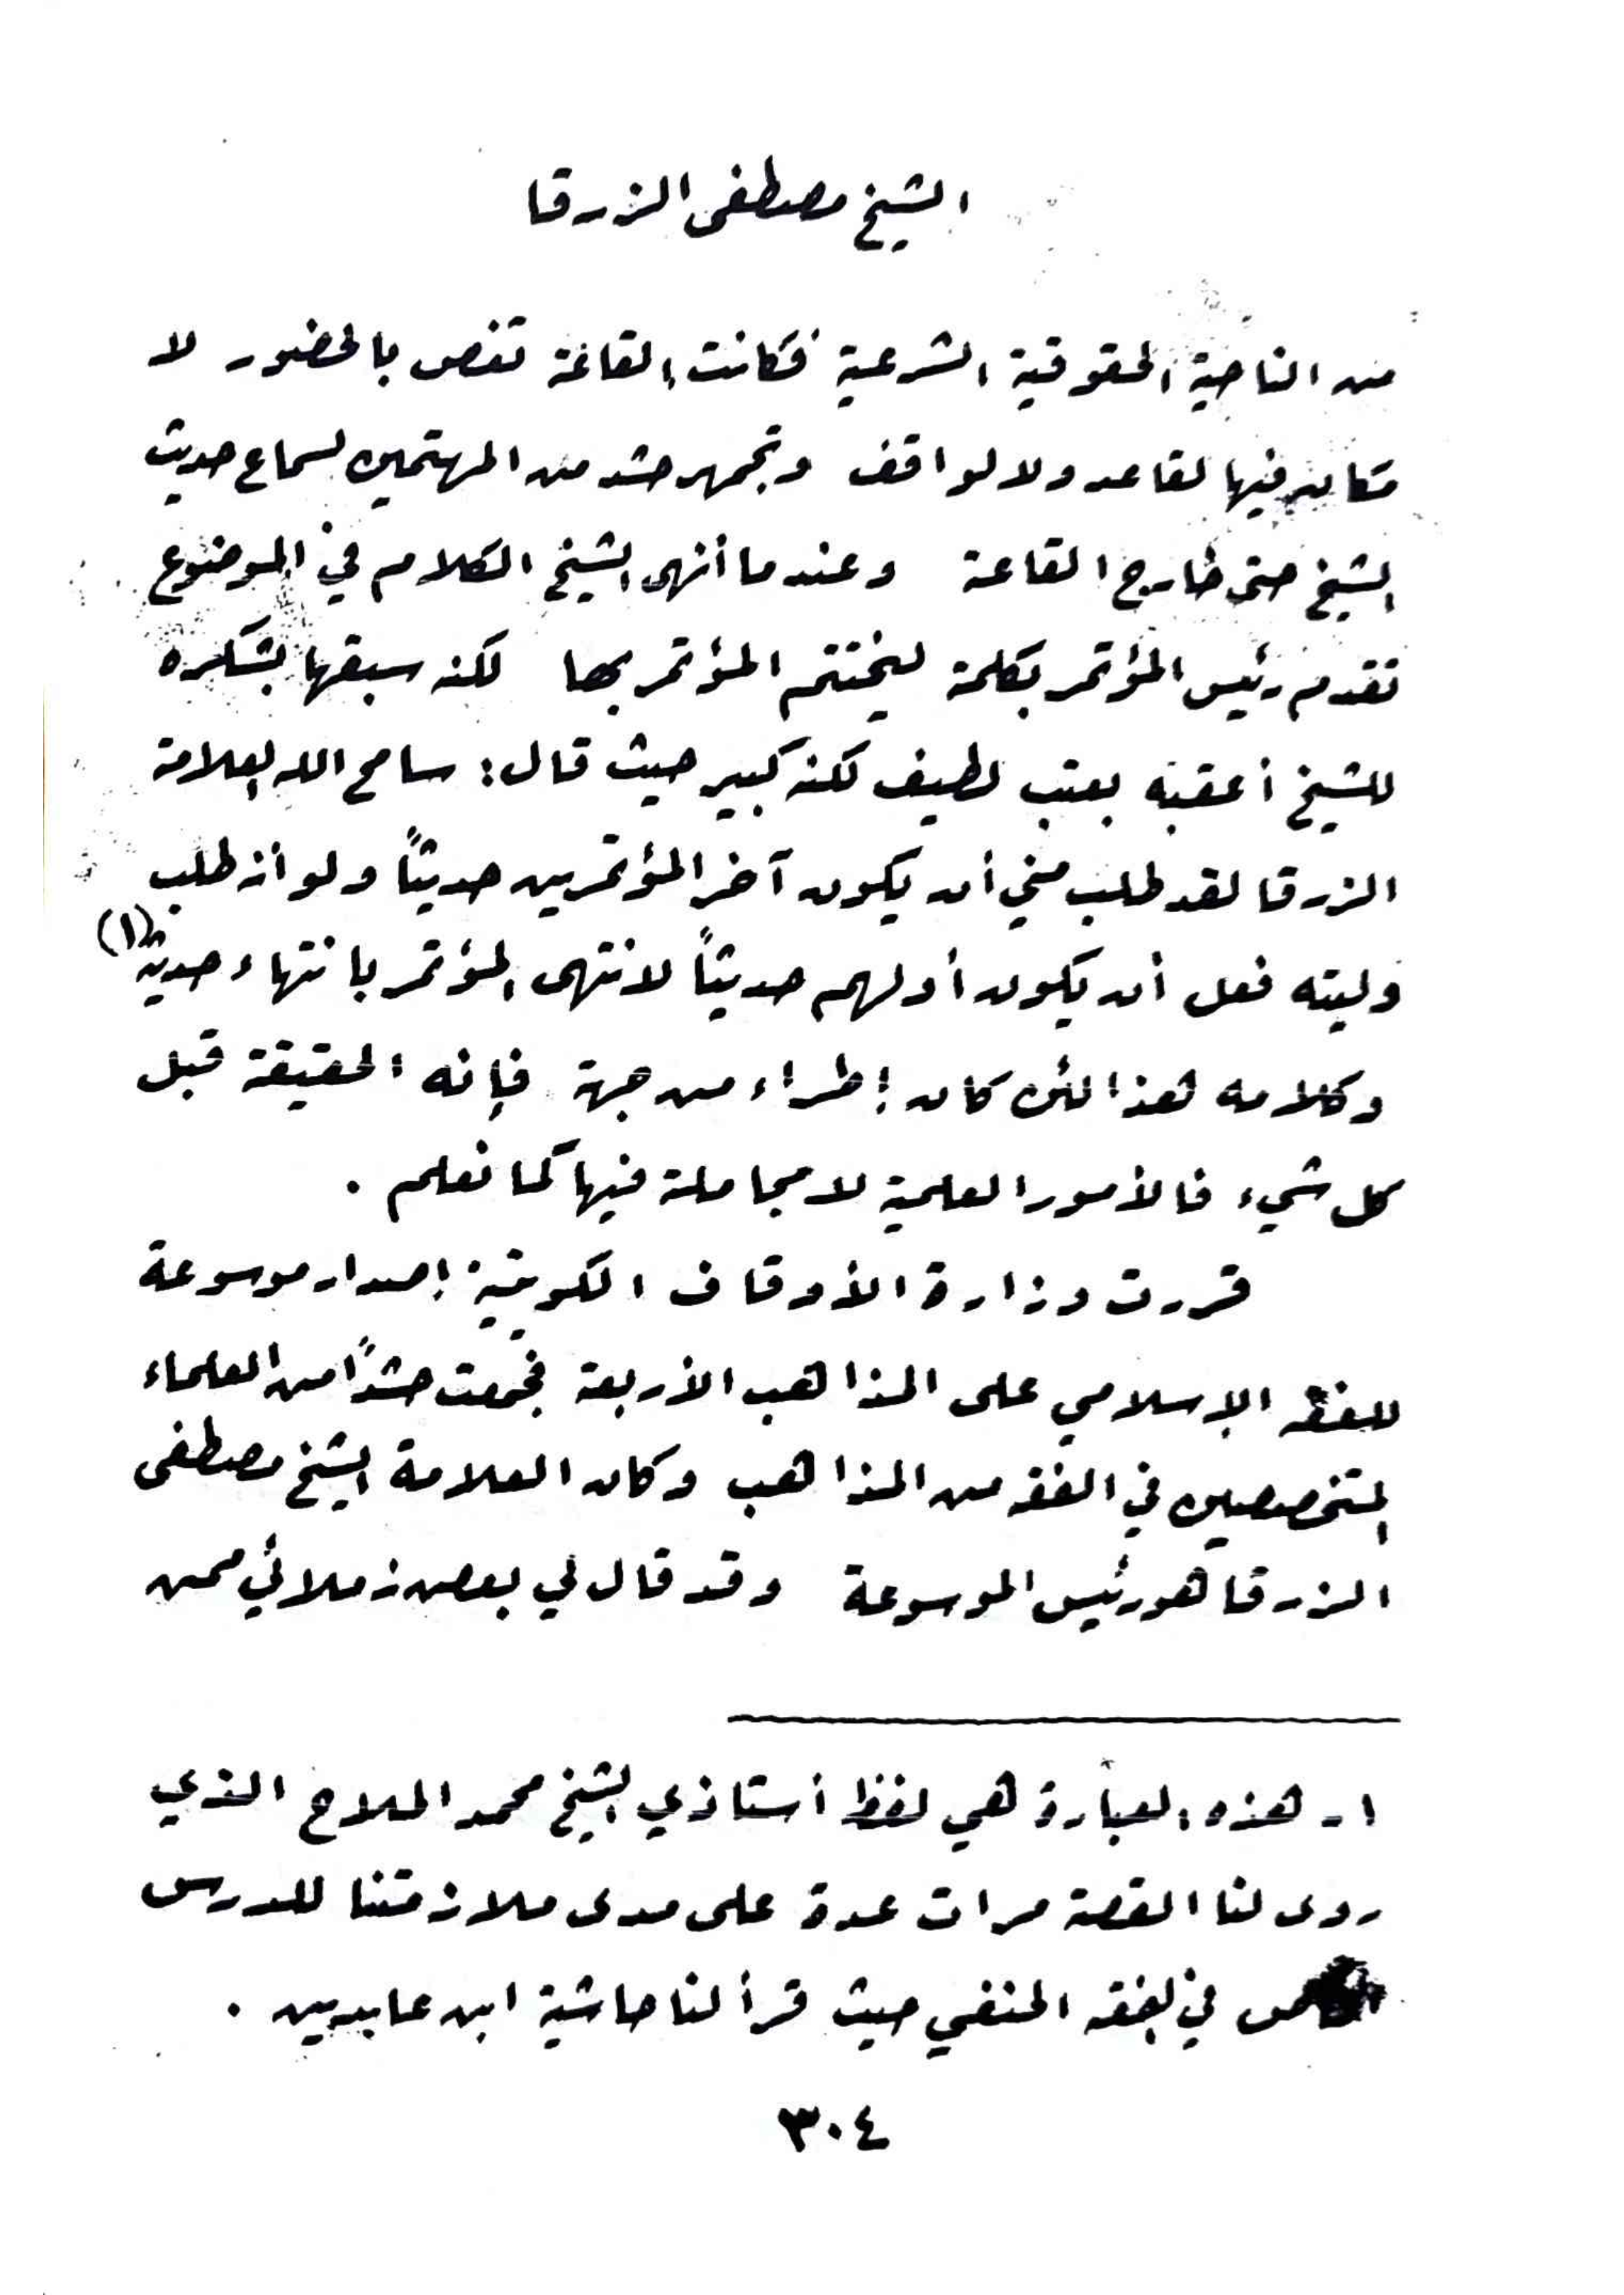 الشيخ مصطفى الزرقا
من الناحية الحقوقية الشرعية فكانت القاعة تغص بالحضور لا
مكان فيها لقاعد ولا لواقف وتجمهر حشد من المهتمين لسماع حديث
الشيخ حتى خارج القاعة وعندما أنهى الشيخ الكلام في الموضوع
تقدم رئيس المؤتمر بكلمة ليختتم المؤتمر بها لكنه سبقها بشكره
للشيخ أعقبه بعتب لطيف لكنه كبير حيث قال: سامح الله العلامة
الزرقا لقد طلب مني أن يكون آخر المؤتمرين حديثاً ولو أنه طلب
وليته فعل أن يكون أولهم حديثاً لانتهى المؤتمر بانتهاء حديثه (١)
وكلامه هذا لئن كان إطراء من جهة فإنه الحقيقة قبل
كل شيء فالأمور العلمية لا مجاملة فيها كما نعلم .
قررت وزارة الأوقاف الكويتية إصدار موسوعة
للفقه الإسلامي على المذاهب الأربعة فجمعت حشداً من العلماء
المتخصصين في الفقه من المذاهب وكان العلامة الشيخ مصطفى
الزرقا هو رئيس الموسوعة وقد قال لي بعض زملائي ممن
١ـ هذه العبارة هي لفظ أستاذي الشيخ محمد الملاح الذي
روى لنا القصة مرات عدة على مدى ملازمتنا للدرس
في الفقه الحنفي حيث قرأ لنا حاشية ابن عابدين .
٣٠٤